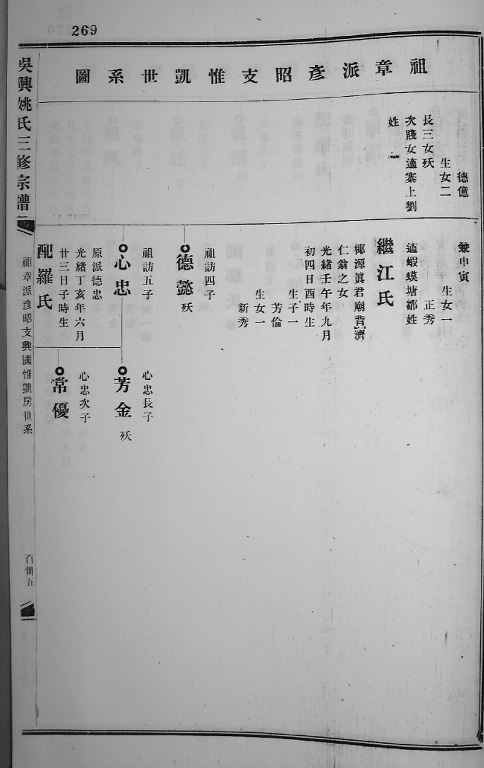 269
祖章派彥昭支惟凱世系圖
德億
生女二
長三女殀
次踐女適寨上劉
姓
兼申寅
生女一
正秀
適蝦蟆塘鄒姓
繼江氏
椰源眞君廟背濟
仁翁之女
光緒壬午年九月
初四日酉時生
生子一
芳倫
生女一
新秀
祖訪四子
德懿 殀
祖訪五子
心忠
原派德忠
光緒丁亥年六月
廿三日子時生
配羅氏
心忠長子
芳金 殀
心忠次子
常優
吳興姚氏三修宗譜
祖章派彥昭支興國惟凱房世系
百卅五